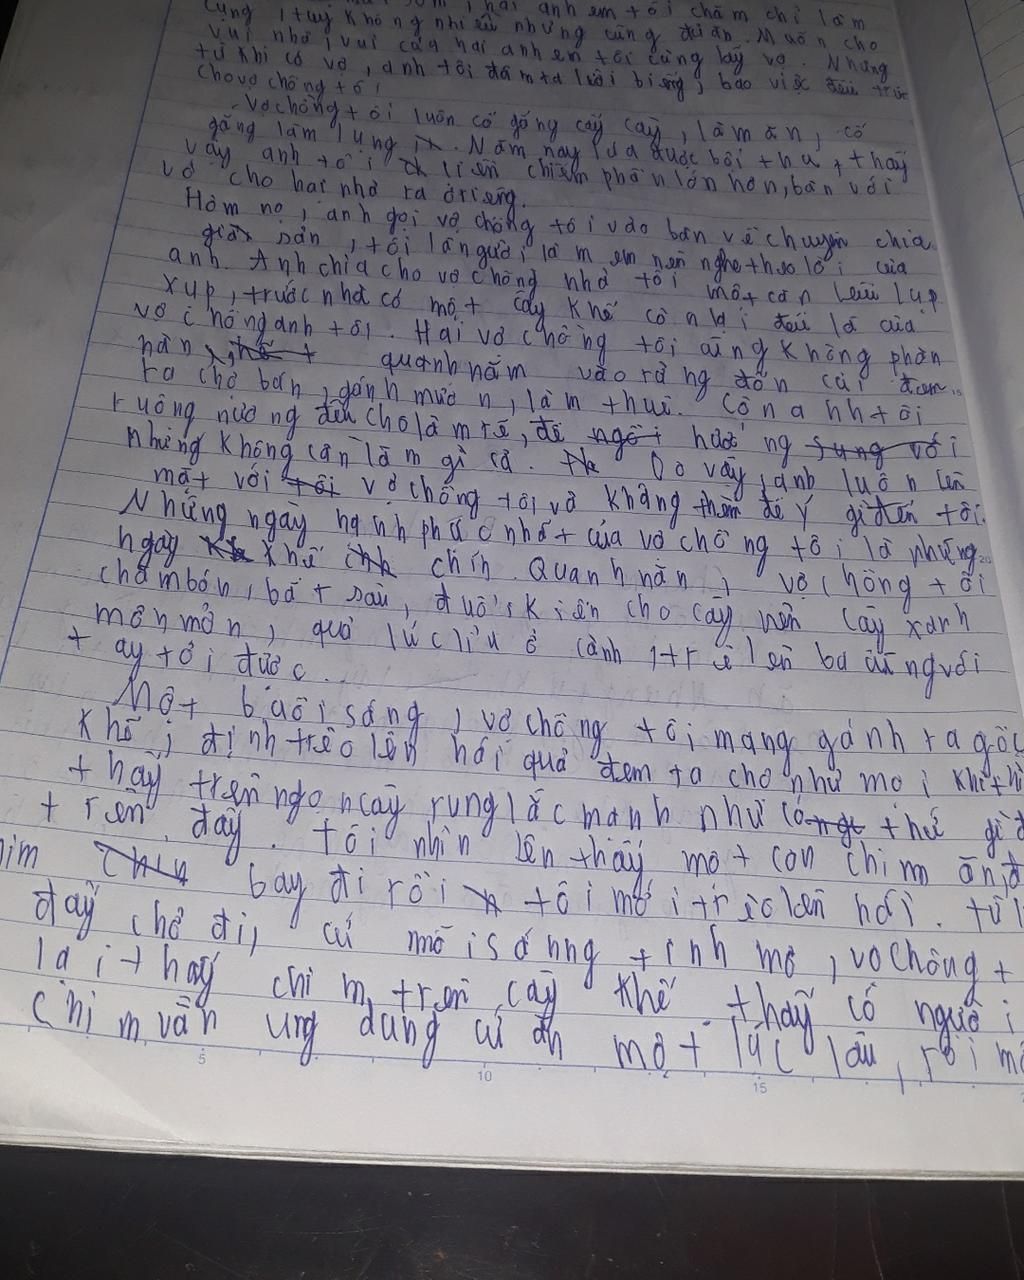 hai anh em tôi chăm chỉ làm
lụng, tuy không nhiều nhưng cũng đủ ăn. Muốn cho
vui nhà, vui cửa hai anh em tôi cùng lấy vợ. Nhưng
từ khi có vợ, anh tôi đâm ra lười biếng, bao việc đều trút
cho vợ chồng tôi
Vợ chồng tôi luôn cố gắng cấy cày, làm ăn, cố
gắng làm lụng. Năm nay lúa được bội thu, thấy
vậy anh tôi liền chiếm phần lớn hơn, bàn với
vợ cho hai nhà ra ở riêng.
Hôm nọ, anh gọi vợ chồng tôi vào bàn về chuyện chia
gia sản, tôi là người làm em nên nghe theo lời của
anh. Anh chia cho vợ chồng nhà tôi một căn lều lụp
xụp, trước nhà có một cây khế còn lại đều là của
vợ chồng anh tôi. Hai vợ chồng tôi cũng không phàn
nàn, quanh năm vào rừng đốn củi đem
ra chợ bán, gánh mướn, làm thuê. Còn anh tôi
ruộng nương đều cho làm rẽ, để ngồi hưởng sung với
nhưng không cần làm gì cả. Do vậy, anh luôn lên
mặt với tôi vợ chồng tôi và không thèm để ý gì đến tôi.
Những ngày hạnh phúc nhất của vợ chồng tôi là những
ngày khế chín. Quanh năm, vợ chồng tôi
chăm bón, bắt sâu, đuổi kiến cho cây nên cây xanh
mơn mởn, quả lúc lỉu ở cành, trẻ lên ba cũng với
tay tới được.
Một buổi sáng, vợ chồng tôi mang gánh ra gốc
khế, định trèo lên hái quả đem ra chợ như mọi khi thì
thấy trên ngọn cây rung lắc mạnh như có thứ gì đ
trên đấy. tôi nhìn lên thấy một con chim ăn, đ
him bay đi rồi tôi mới trèo lên hái. từ l
đấy chở đi, cứ mỗi sáng tinh mơ, vợ chồng t
lại thấy chim trên cây khế. thấy có người
chim vẫn ung dung cứ ăn một lúc lâu, rồi mớ
5
10
15